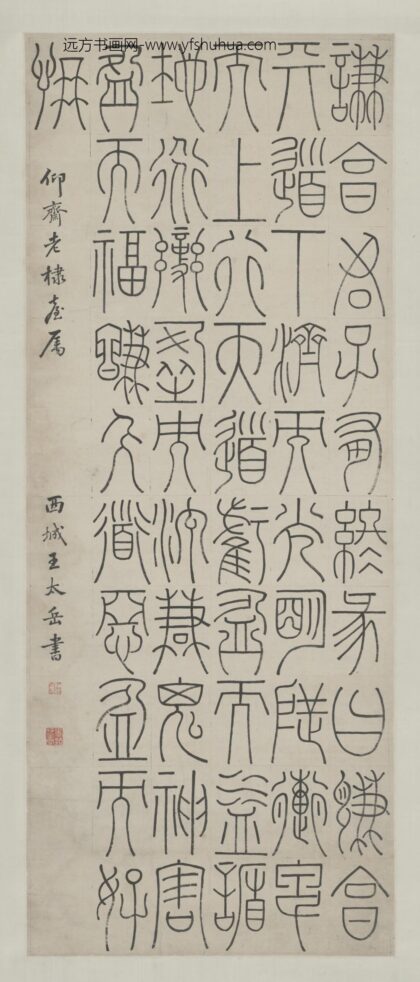 远方书画网-www.yfshuhua.com
謙亨君子有終彖曰謙亨
天道下濟而光明地道卑
而上行天道虧盈而益謙
地道變盈而流謙鬼神害
盈而福謙人道惡盈而好
謙
仰齋老棣臺属
西城王太岳書